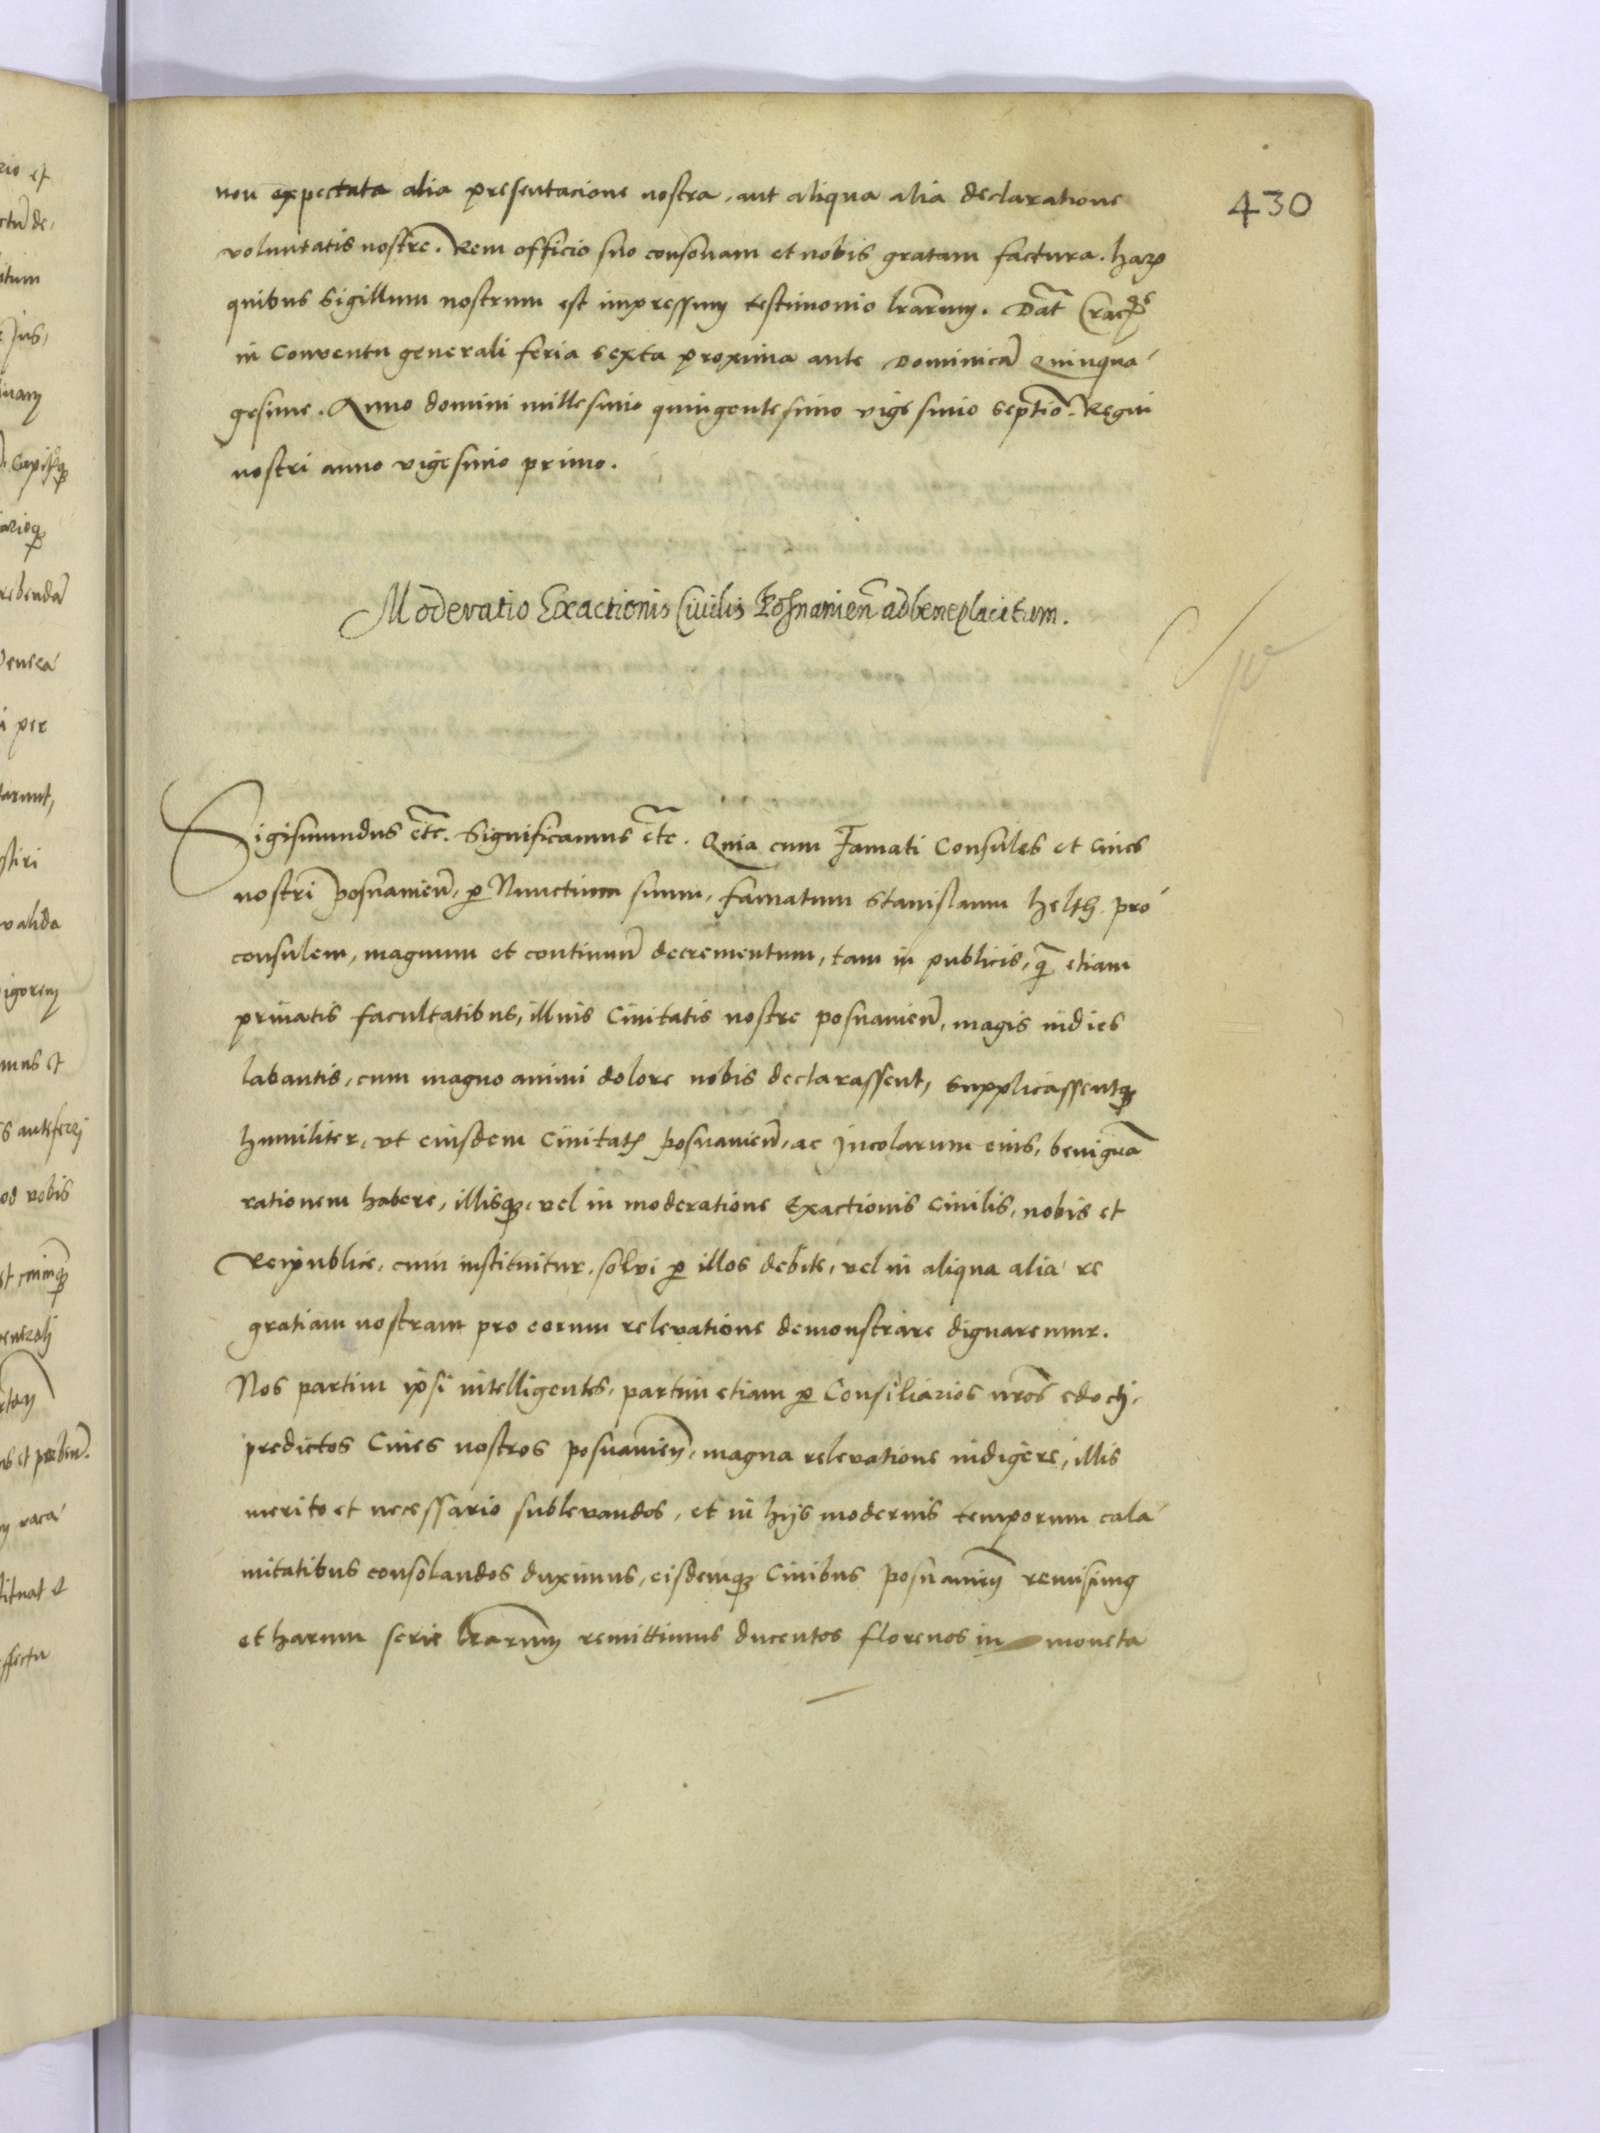 430
non expectata alia presentacione nostra, aut aliqua alia declaratione
voluntatis nostre. Rem officio suo consonam et nobis gratam factura. harꝝ
quibus Sigillum nostrum est impressum testimonio lr̃arum. Dat̃ Crac̃
in Conventu generali feria sexta proxima ante Dominicã Quinqua
gesime. Anno domini millesimo quingentesimo vigesimo septĩo. Regni
nostri anno vigesimo primo.
Moderatio Exactionis Civilis Posnanieñ ad beneplacitum.
Sigismundus etc̃. Significamus etc̃. Quia cum Famati Consules et Cives
nostri posnanieñ, ꝑ Nunctium suum, famatum Stanislaum Helth pro
consulem, magnum et continuũ decrementum, tam in publicis, q̃ etiam
privatis facultatibus, illius Civitatis nostre posnanieñ, magis indies
labantis, cum magno animi dolore nobis declarassent, supplicassentqꝫ
humiliter, vt eiusdem Civitatꝭ posnanieñ, ac Jncolarum eius, benignã
rationem habere, illisqꝫ, vel in moderatione Exactionis Civilis, nobis et
Reipublice, cum instituitur, solvi ꝑ illos debite, vel in aliqua alia re
gratiam nostram pro eorum relevatione demonstrare dignaremur.
Nos partim ipsi intelligentes, partim etiam ꝑ Consiliarios nr̃os edocti,
predictos Cives nostros posnanieñ, magna relevatione indigere, illis
merito et necessario sublevandos, et in hijs modernis temporum cala
mitatibus consolandos duximus, eisdemqꝫ Civibus posnanieñ remisimꝯ
et harum serie lr̃arum remittimus ducentos florenos in moneta